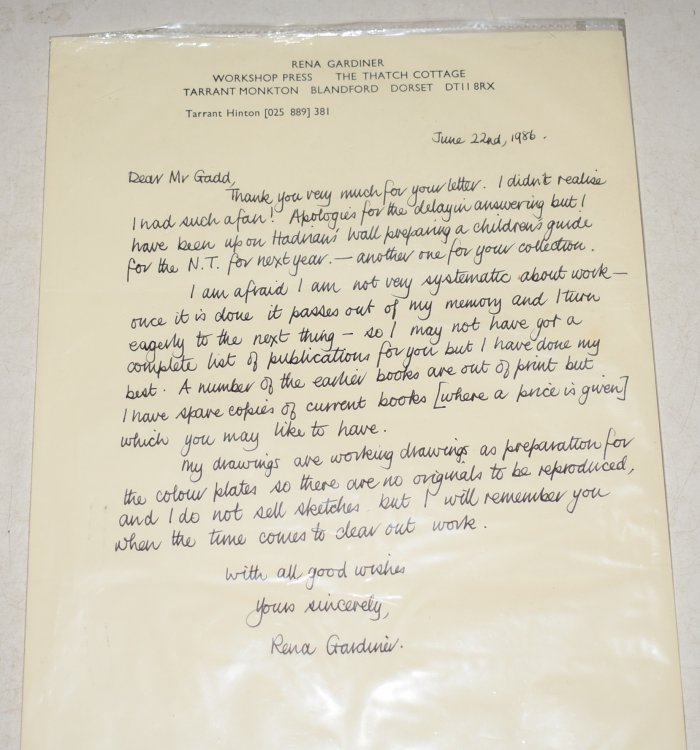 RENA GARDINER
WORKSHOP PRESS THE THATCH COTTAGE
TARRANT MONKTON BLANDFORD DORSET DT11 8RX
Tarrant Hinton [025 889] 381
June 22nd, 1986.
Dear Mr Gadd,
Thank you very much for your letter. I didn't realise
I had such a fan! Apologies for the delay in answering but I
have been up on Hadrian's Wall preparing a children's guide
for the N.T. for next year. — another one for your collection.
I am afraid I am not very systematic about work —
once it is done it passes out of my memory and I turn
eagerly to the next thing — so I may not have got a
complete list of publications for you but I have done my
best. A number of the earlier books are out of print but
I have spare copies of current books [where a price is given]
which you may like to have.
My drawings are working drawings as preparation for
the colour plates so there are no originals to be reproduced,
and I do not sell sketches but I will remember you
when the time comes to clear out work.
With all good wishes
Yours sincerely,
Rena Gardiner.